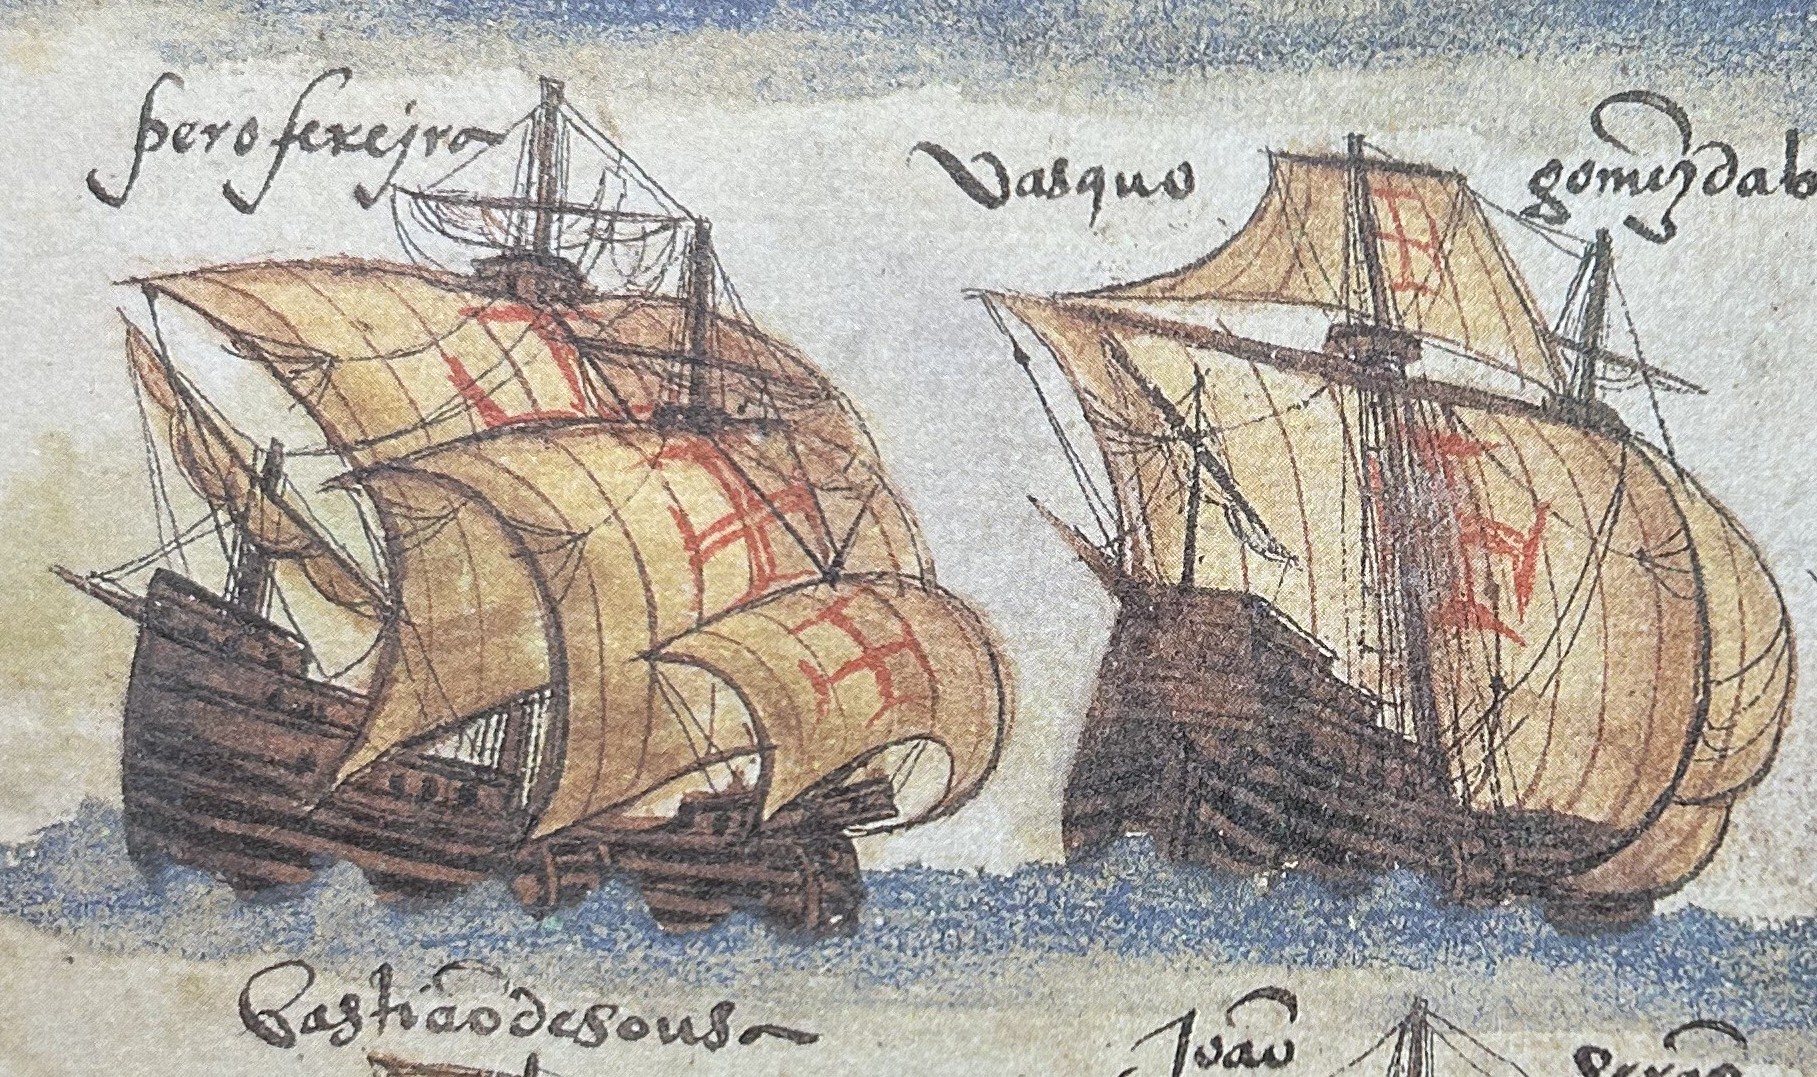 pero fereyra
Vasquo gomez dab
Bastiaõ de sousa
Joaõ